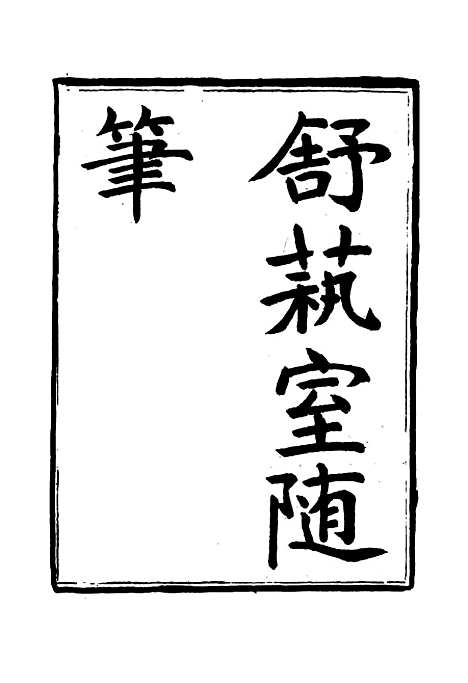 舒萟室随
筆